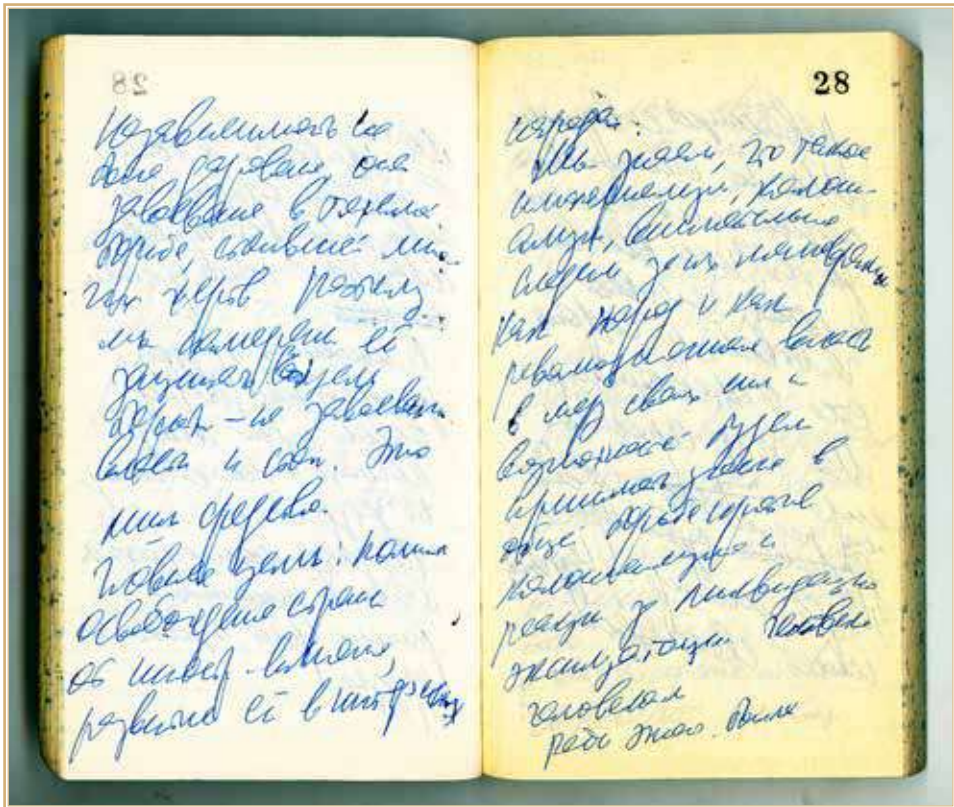 28
Независимость не
была дарована, она
завоевана в тяжелой
борьбе, стоившей мно-
гих жертв. Поэтому
мы намерены её
защищать. Цель
борьбы – не завоевание
власти и .. Это
лишь средство.
Главная цель: полное
освобождение страны
от иностр. влияния,
развитие её в интересах
28
народа.
Мы знаем, что такое
империализм, колони-
ализм, внимательно
следим за их
как народ и как
революционная власть
в меру своих сил и
возможностей будем
принимать участие в
общей борьбе против
колониализма и
реакции за ликвидацию
эксплуатации человека
человеком
Ради этого